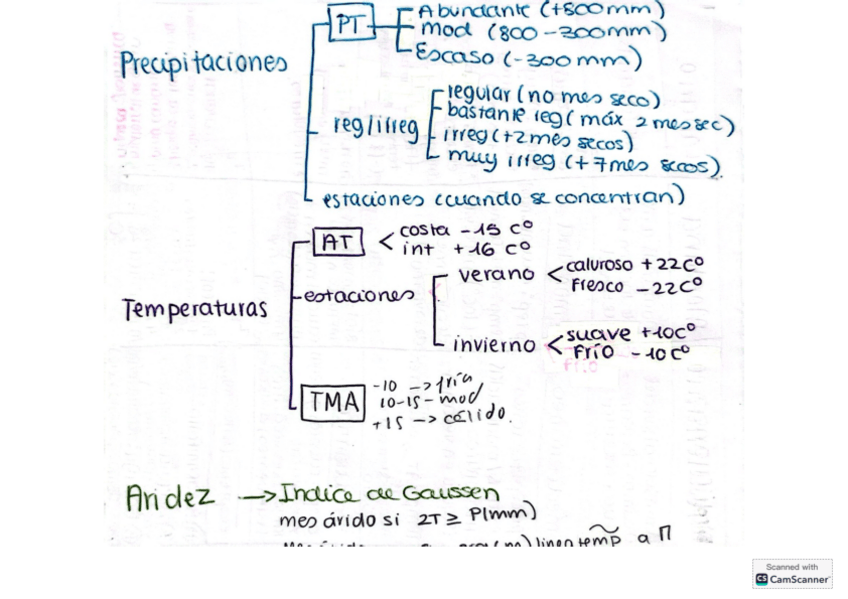 PT
Abundante (+800mm)
mod (800-300mm)
Escaso (-300mm)
Precipitaciones
reg/irreg
regular (no mes seco)
bastante reg (máx 2 mes sec)
irreg (+2 mes secos)
muy irreg (+7 mes secos)
estaciones (cuando se concentran)
AT
costa -15 Cº
int +16 Cº
Temperaturas
estaciones
verano
caluroso +22Cº
Fresco -22Cº
invierno
suave +10Cº
Frío -10Cº
TMA
-10 -> fría
10-15 - mod
+15 -> cálido.
Aridez -> Indice de Gaussen
mes árido si 2T ≥ P(mm)
linea temp a
Scanned with
CS CamScanner